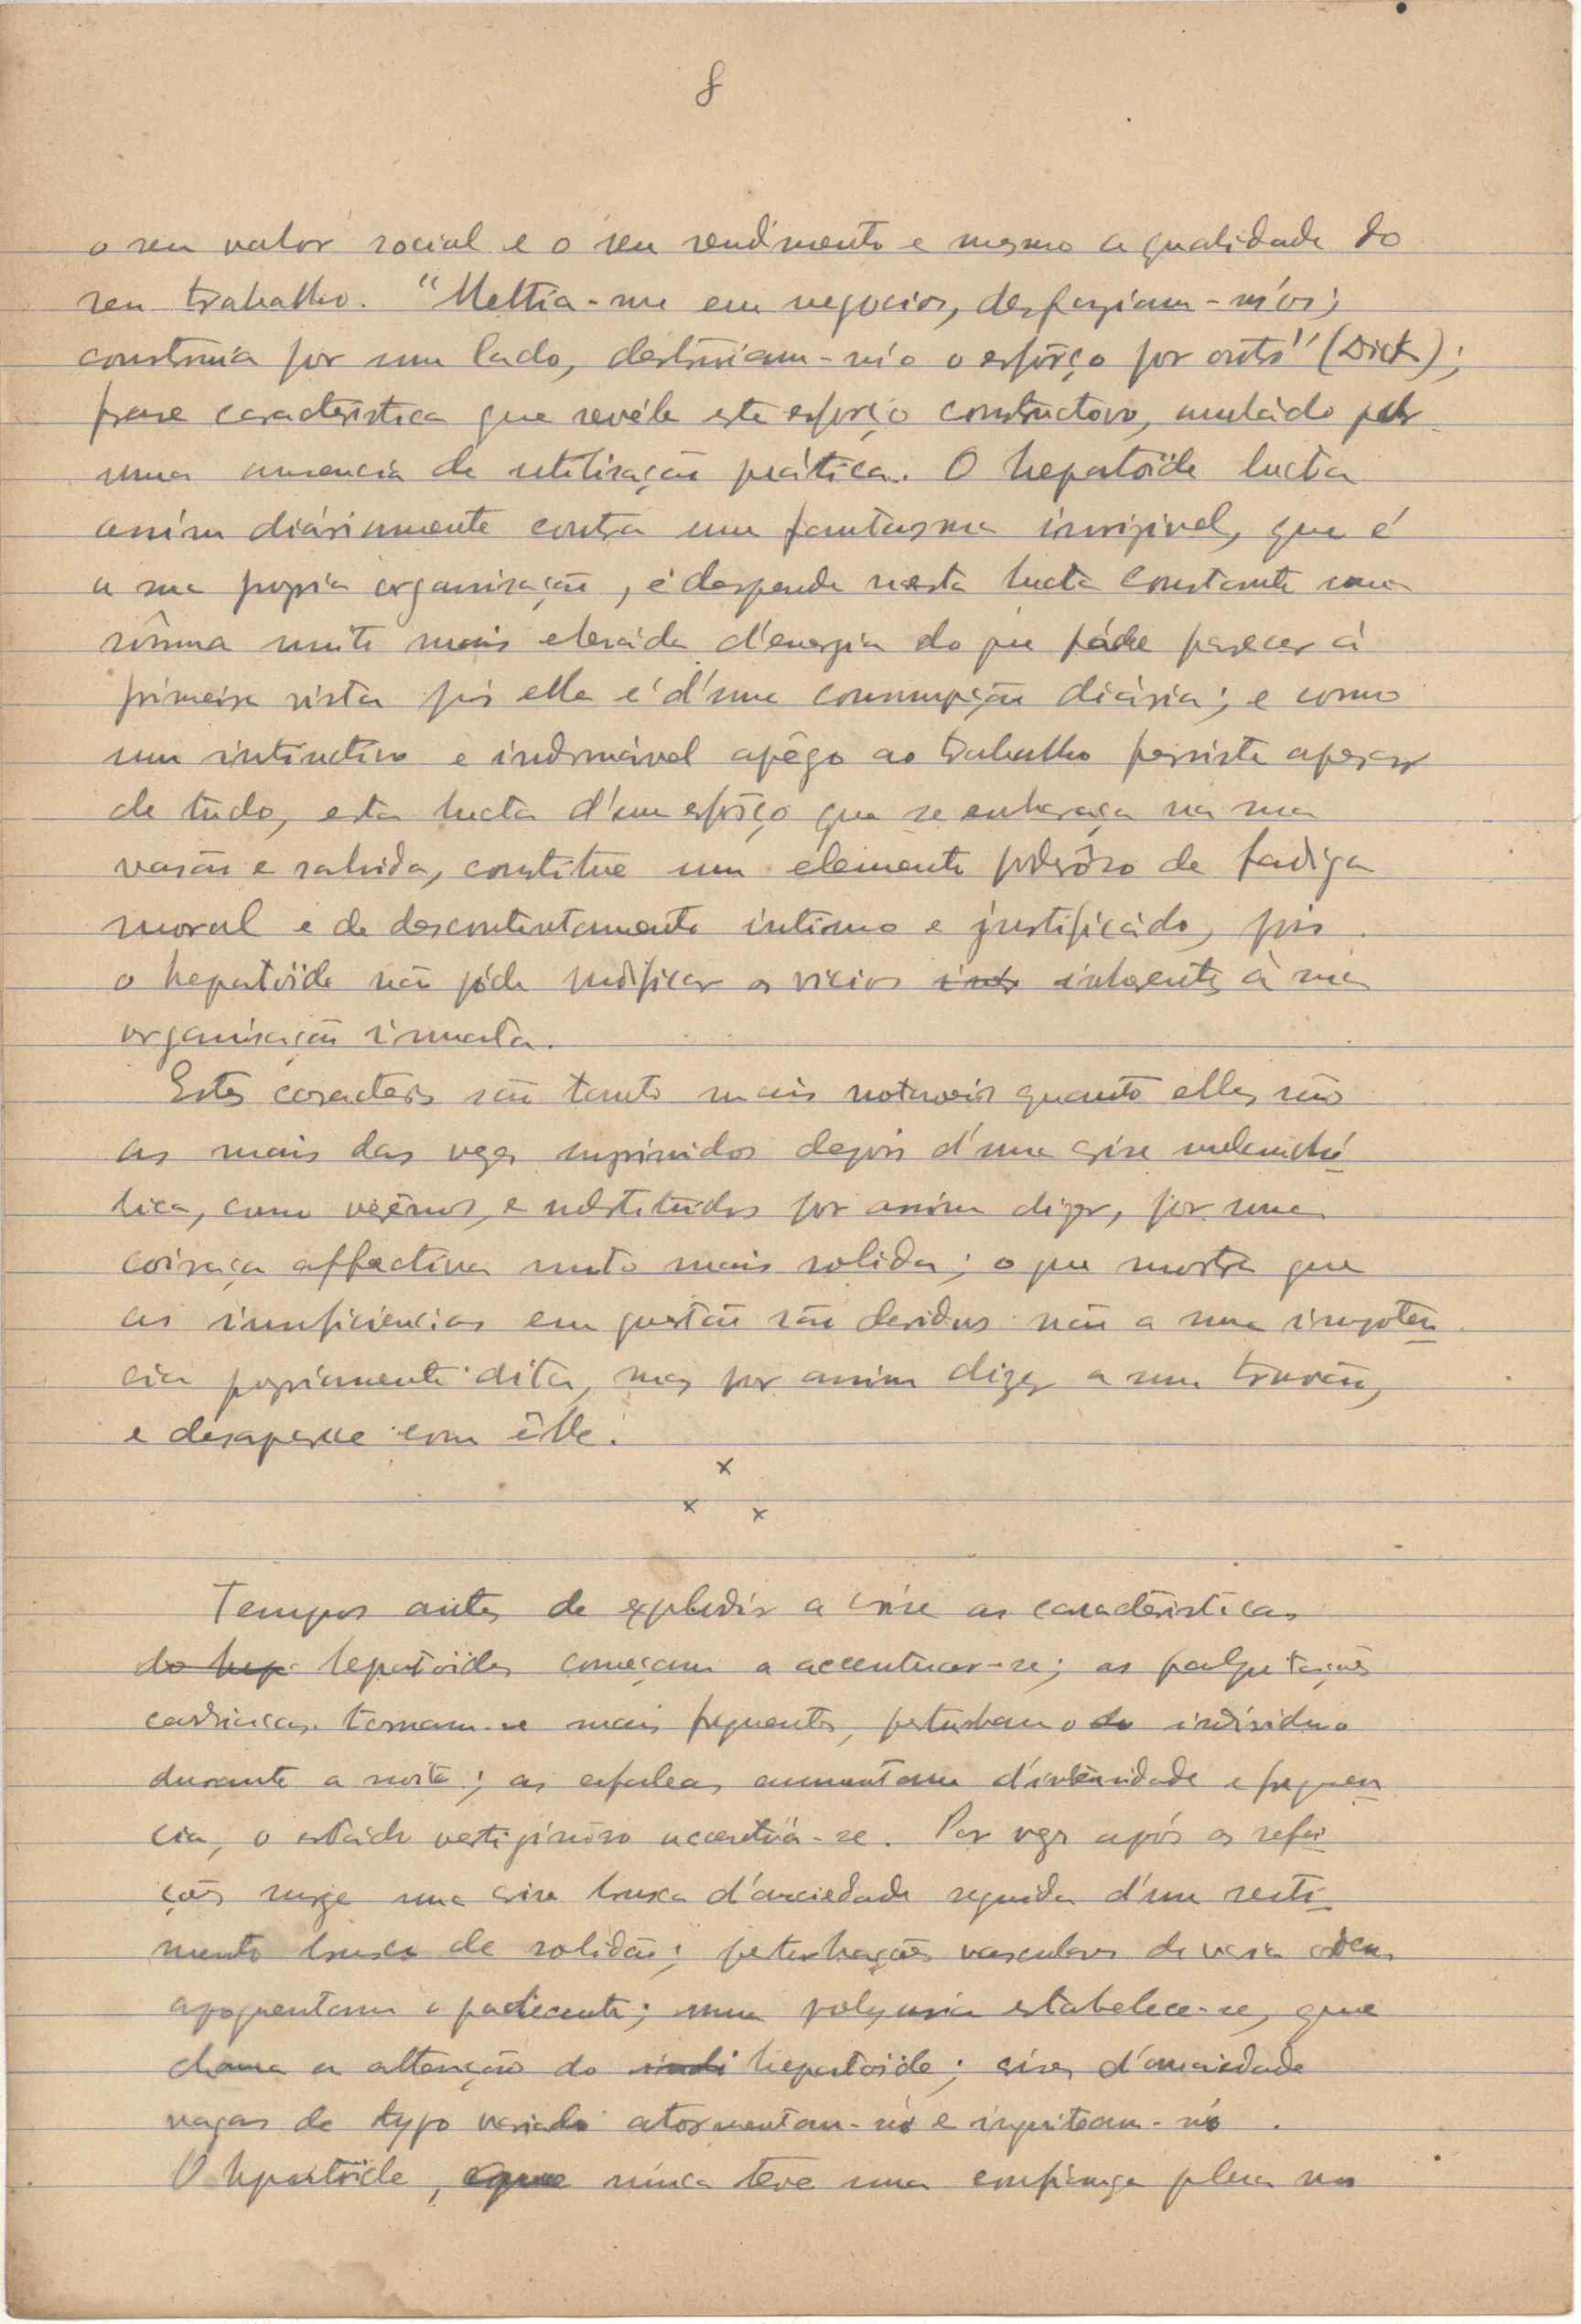 8
o seu valor social e o seu rendimento e mesmo a qualidade do
seu trabalho. "Mettia-me em negocios, desfaziam-m'os;
construia por um lado, destruiam-m'o o esforço por outro" (Dick);
frase caracteristica que revéla este esforço constructivo, anulado por
uma ausencia de utilisação prática. O hepatoïde lucta
assim diáriamente contra um fantasma invizivel, que é
a sua propria organisação, e despende nesta lucta constante uma
sômma muito mais elevada d'energia do que póde parecer á
primeira vista pois ella é d'uma consumpção diária; e como
um intinctivo e indomável apêgo ao trabalho persiste apezar
de tudo, esta lucta d'um esforço que se embaraça na sua
vasão e sahida, constitue um elemento poderôso de fadiga
moral e de descontentamento intimo e justificádo, pois
o hepatoïde não póde modificar os vicios inherentes à sua
organisação innata.
Estes caracteres são tanto mais notaveis quanto elles são
as mais das vezes suprimidos depois d'uma crise melanchó
lica, como verêmos, e substituidos por assim dizer, por uma
coiraça affectiva muito mais solida; o que mostra que
as insuficiencias em questão são devidas não a uma impoten
cia propriamente dita, mas por assim dizer a um travão,
e desaparece com êlle.
x
x x
Tempos antes de explodir a crise as caracteristicas
do hep. hepatoides começam a accentuar-se; as palpitações
cardiacas tornam-se mais frequentes, perturbam o do individuo
durante a noite; as cefaleas aumentam d'intensidade e frequen
cia, o estádo vertiginôso accentüa-se. Por vezes após as refei
ções surge uma crise brusca d'anciedade seguida d'um senti
mento brusco de solidão; perturbações vasculares de varia ordem
apoquentam o padecente; uma polyuria estabelece-se, que
chama a attenção do indi hepatoide; crises d'anciedade
vagas de typo variado atormentam-n'o e inquietam-n'o.
O hepatoïde, que nunca teve uma confiança plena no